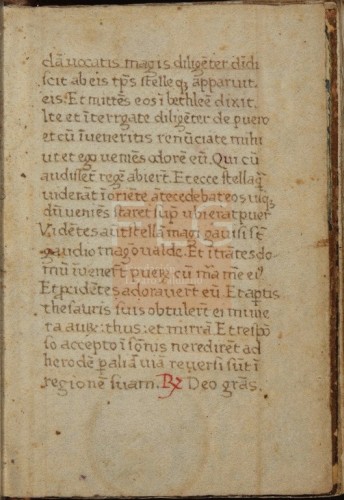 clā uocatis magis diligēter didi
scit ab eis tp̄s stelle q̄ apparuit
eis: Et mittēs eos ī bethleē dixit.
Ite et īterrgate diligēter de puero
et cū īueneritis renūciate mihi
ut et ego ueniēs adorē eū. Qui cū
audissēt regē abiert̄. Et ecce stella q̄
uiderāt ī oriēte ātecedebat eos usq̄
dū ueniēs staret sup̄ ubi erat puer
Vidētes aūt stellā magi gauisi sēt
gaudio magno ualde. Et ītrātes do-
mū īuenert̄ puerū cū ma me ei
Et pcidētes adorauert̄ eū. Et aptis
thesauris suis obtulert̄ ei mune
ra aurū: thus: et mirrā. Et respō
so accepto ī sōnis ne redirēt ad
herodē p aliā uiā reuersi sūt ī
regionē suam. R̷ Deo gr̄as.